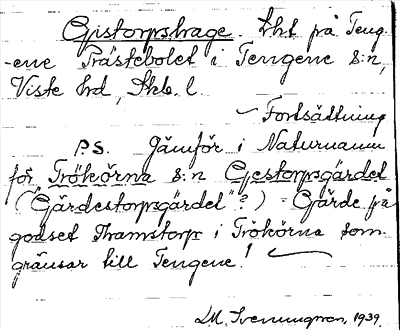 Gistorpshage. Åkt på Teng-
ene Prästebolet i Tengene s:n,
Viste hd, Skb. l.
Fortsättning
P.S. Jämför i Naturnamn
för Trökörna s:n Gestorpsgärdet
("Gärdestorpsgärdet"?) = Gärde på
godset Thamstorp i Trökörna som
gränsar till Tengene!
D.M. Svenungsson, 1939.